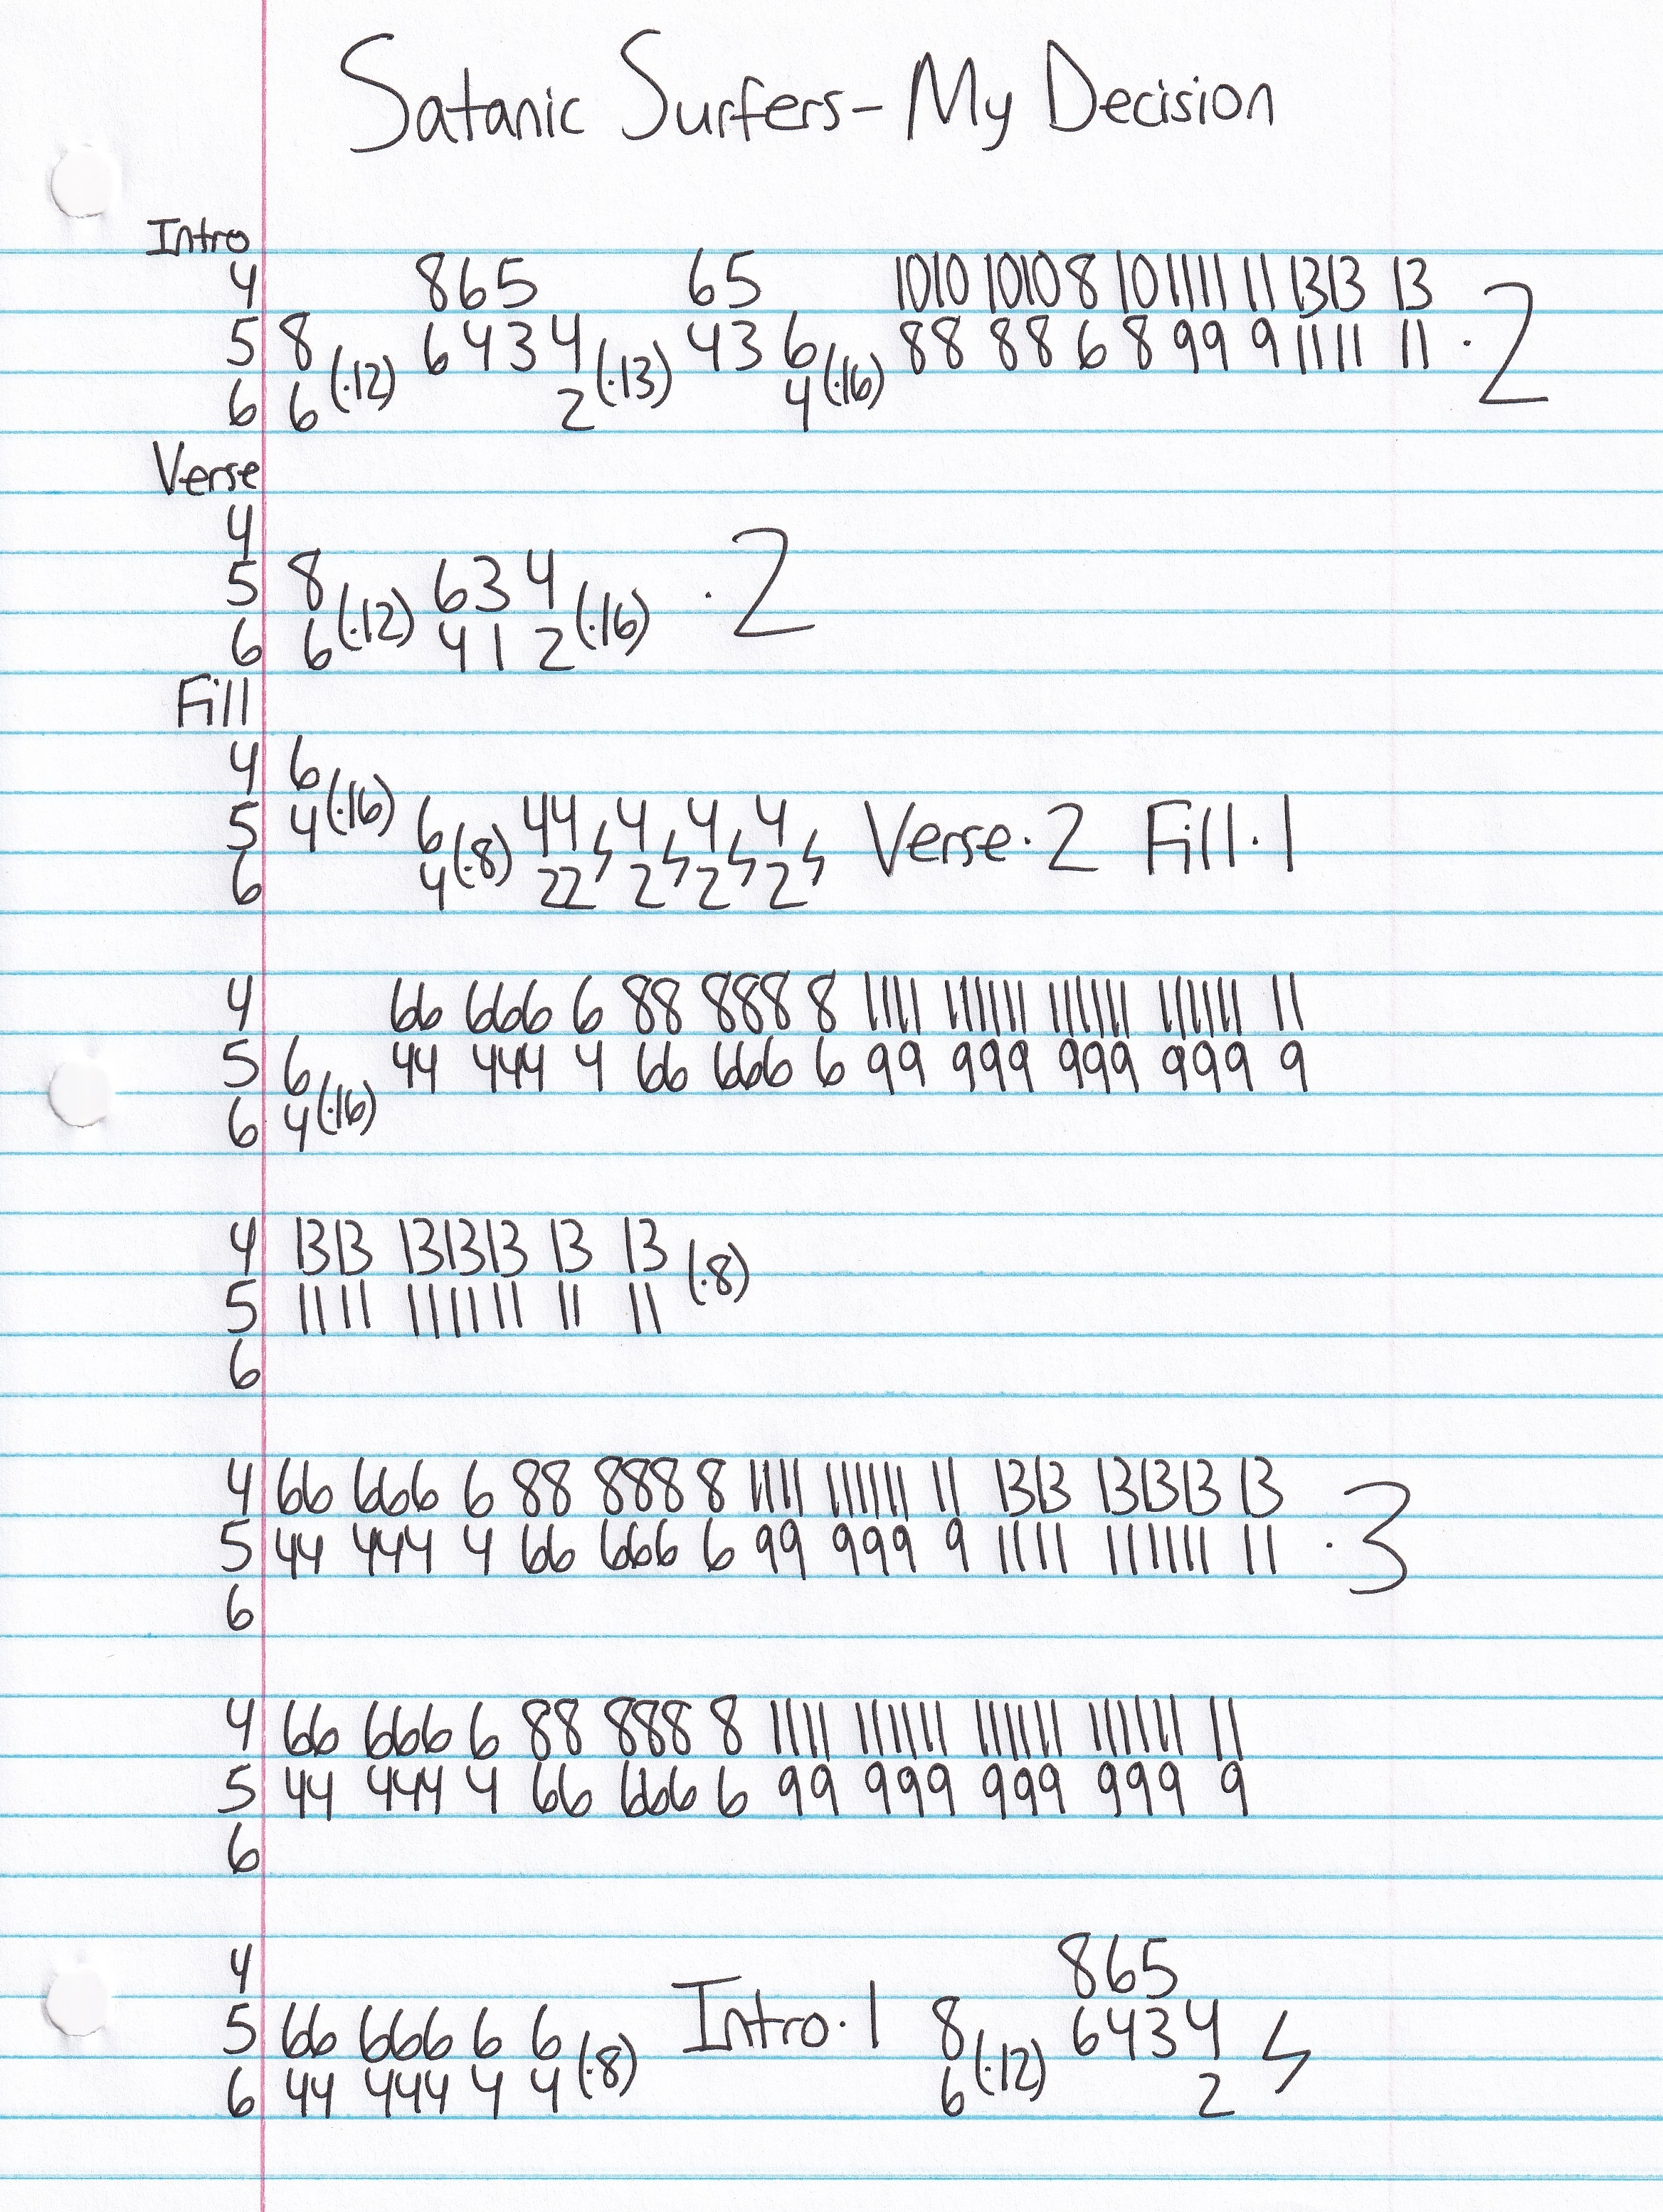 Satanic Surfers - My Decision
Intro
4 865 65 1010 1010 8 10 1111 11 1313 13
5 8 (·12) 6 4 3 4 (·13) 4 3 6 (·16) 88 88 6 8 99 9 1111 11 ·2
6 6 2 4
Verse
4
5 8 (·12) 6 3 4 (·16) ·2
6 6 4 1 2
Fill
4 6
5 4 (·16) 6 (·8) 44 4 4 4 Verse·2 Fill·1
6 4 22 2 2 2
4 66 666 6 88 888 8 1111 111111 111111 111111 11
5 6 44 444 4 66 666 6 99 999 999 999 9
6 4 (·16)
4 1313 131313 13 13 (·8)
5 1111 111111 11 11
6
4 66 666 6 88 888 8 1111 111111 11 1313 131313 13
5 44 444 4 66 666 6 99 999 9 1111 111111 11 ·3
6
4 66 666 6 88 888 8 1111 111111 111111 111111 11
5 44 444 4 66 666 6 99 999 999 999 9
6
4 865
5 66 666 6 6 (·8) Intro·1 8 (·12) 6 4 3 4
6 44 444 4 4 6 2